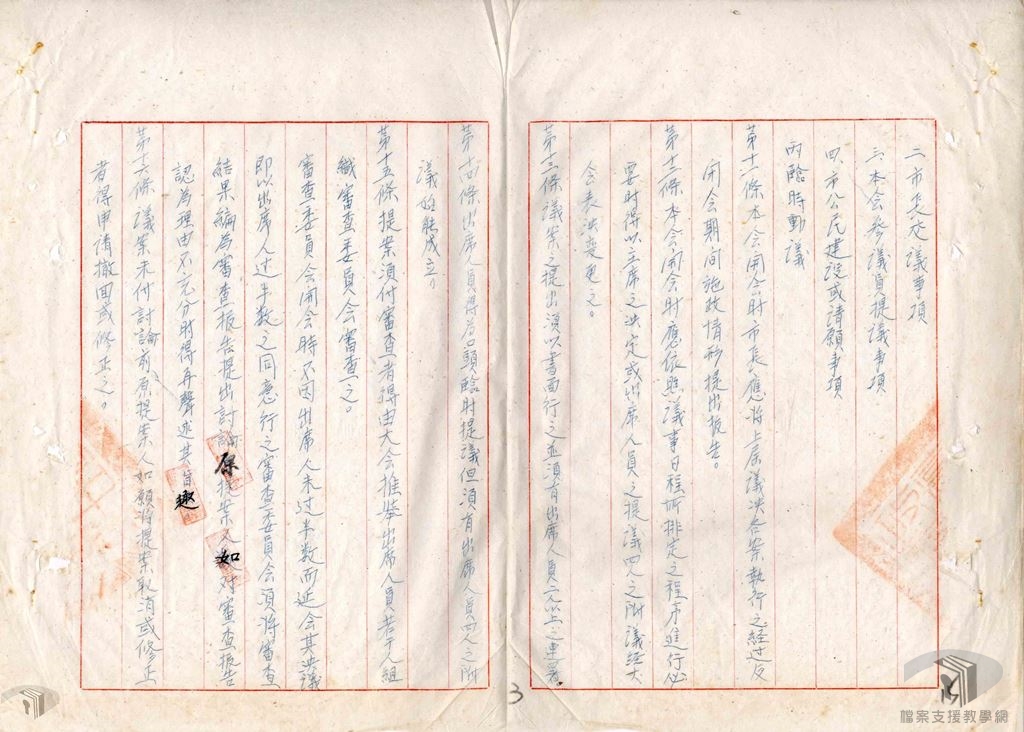 二市長交議事項
三本会參議員提議事項
四市公民建設或請願事項
丙臨時動議
第十一條本会開会時市長應將上屆議決各案執行之經过及
開会期间施政情形提出报告。
第十二條本会開会时應依照議事日程所排定之程序進行必
要时得以主席之決定或出席人員之提議四人之附議經大
会表決変更之。
第十三條議案之提出須以書面行之並須有出席人員二人以上之連署。
第十四條出席人員得为口頭臨时提議但須有出席人員四人之附
議始能成立。
第十五條提案須付審查者得由大会推举出席人員若干人組
織審查委員会審查之。
審查委員会開会時不因出席人未过半数而延会其決議
即以出席人过半数之同意行之審查委員会須将審查
結果編为審查报告提出討論原提案人如对審查报告
認为理由不充分时得再聲述其旨趣
第十六條議案未付討論前原提案人如願將提案取消或修正
者得申请撤回或修正之。
3
15
檔案支援教學網